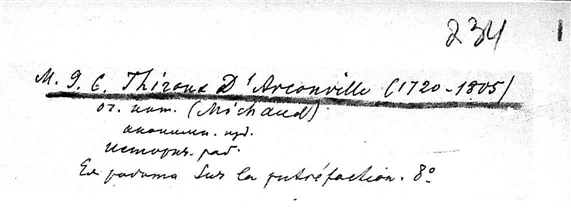 234
M. G. C. Thiroux D'Arconville (1720-1805)
(Michaud)
аноним. изд.
историч. раб.
Ее работа Sur la putréfaction. 8º